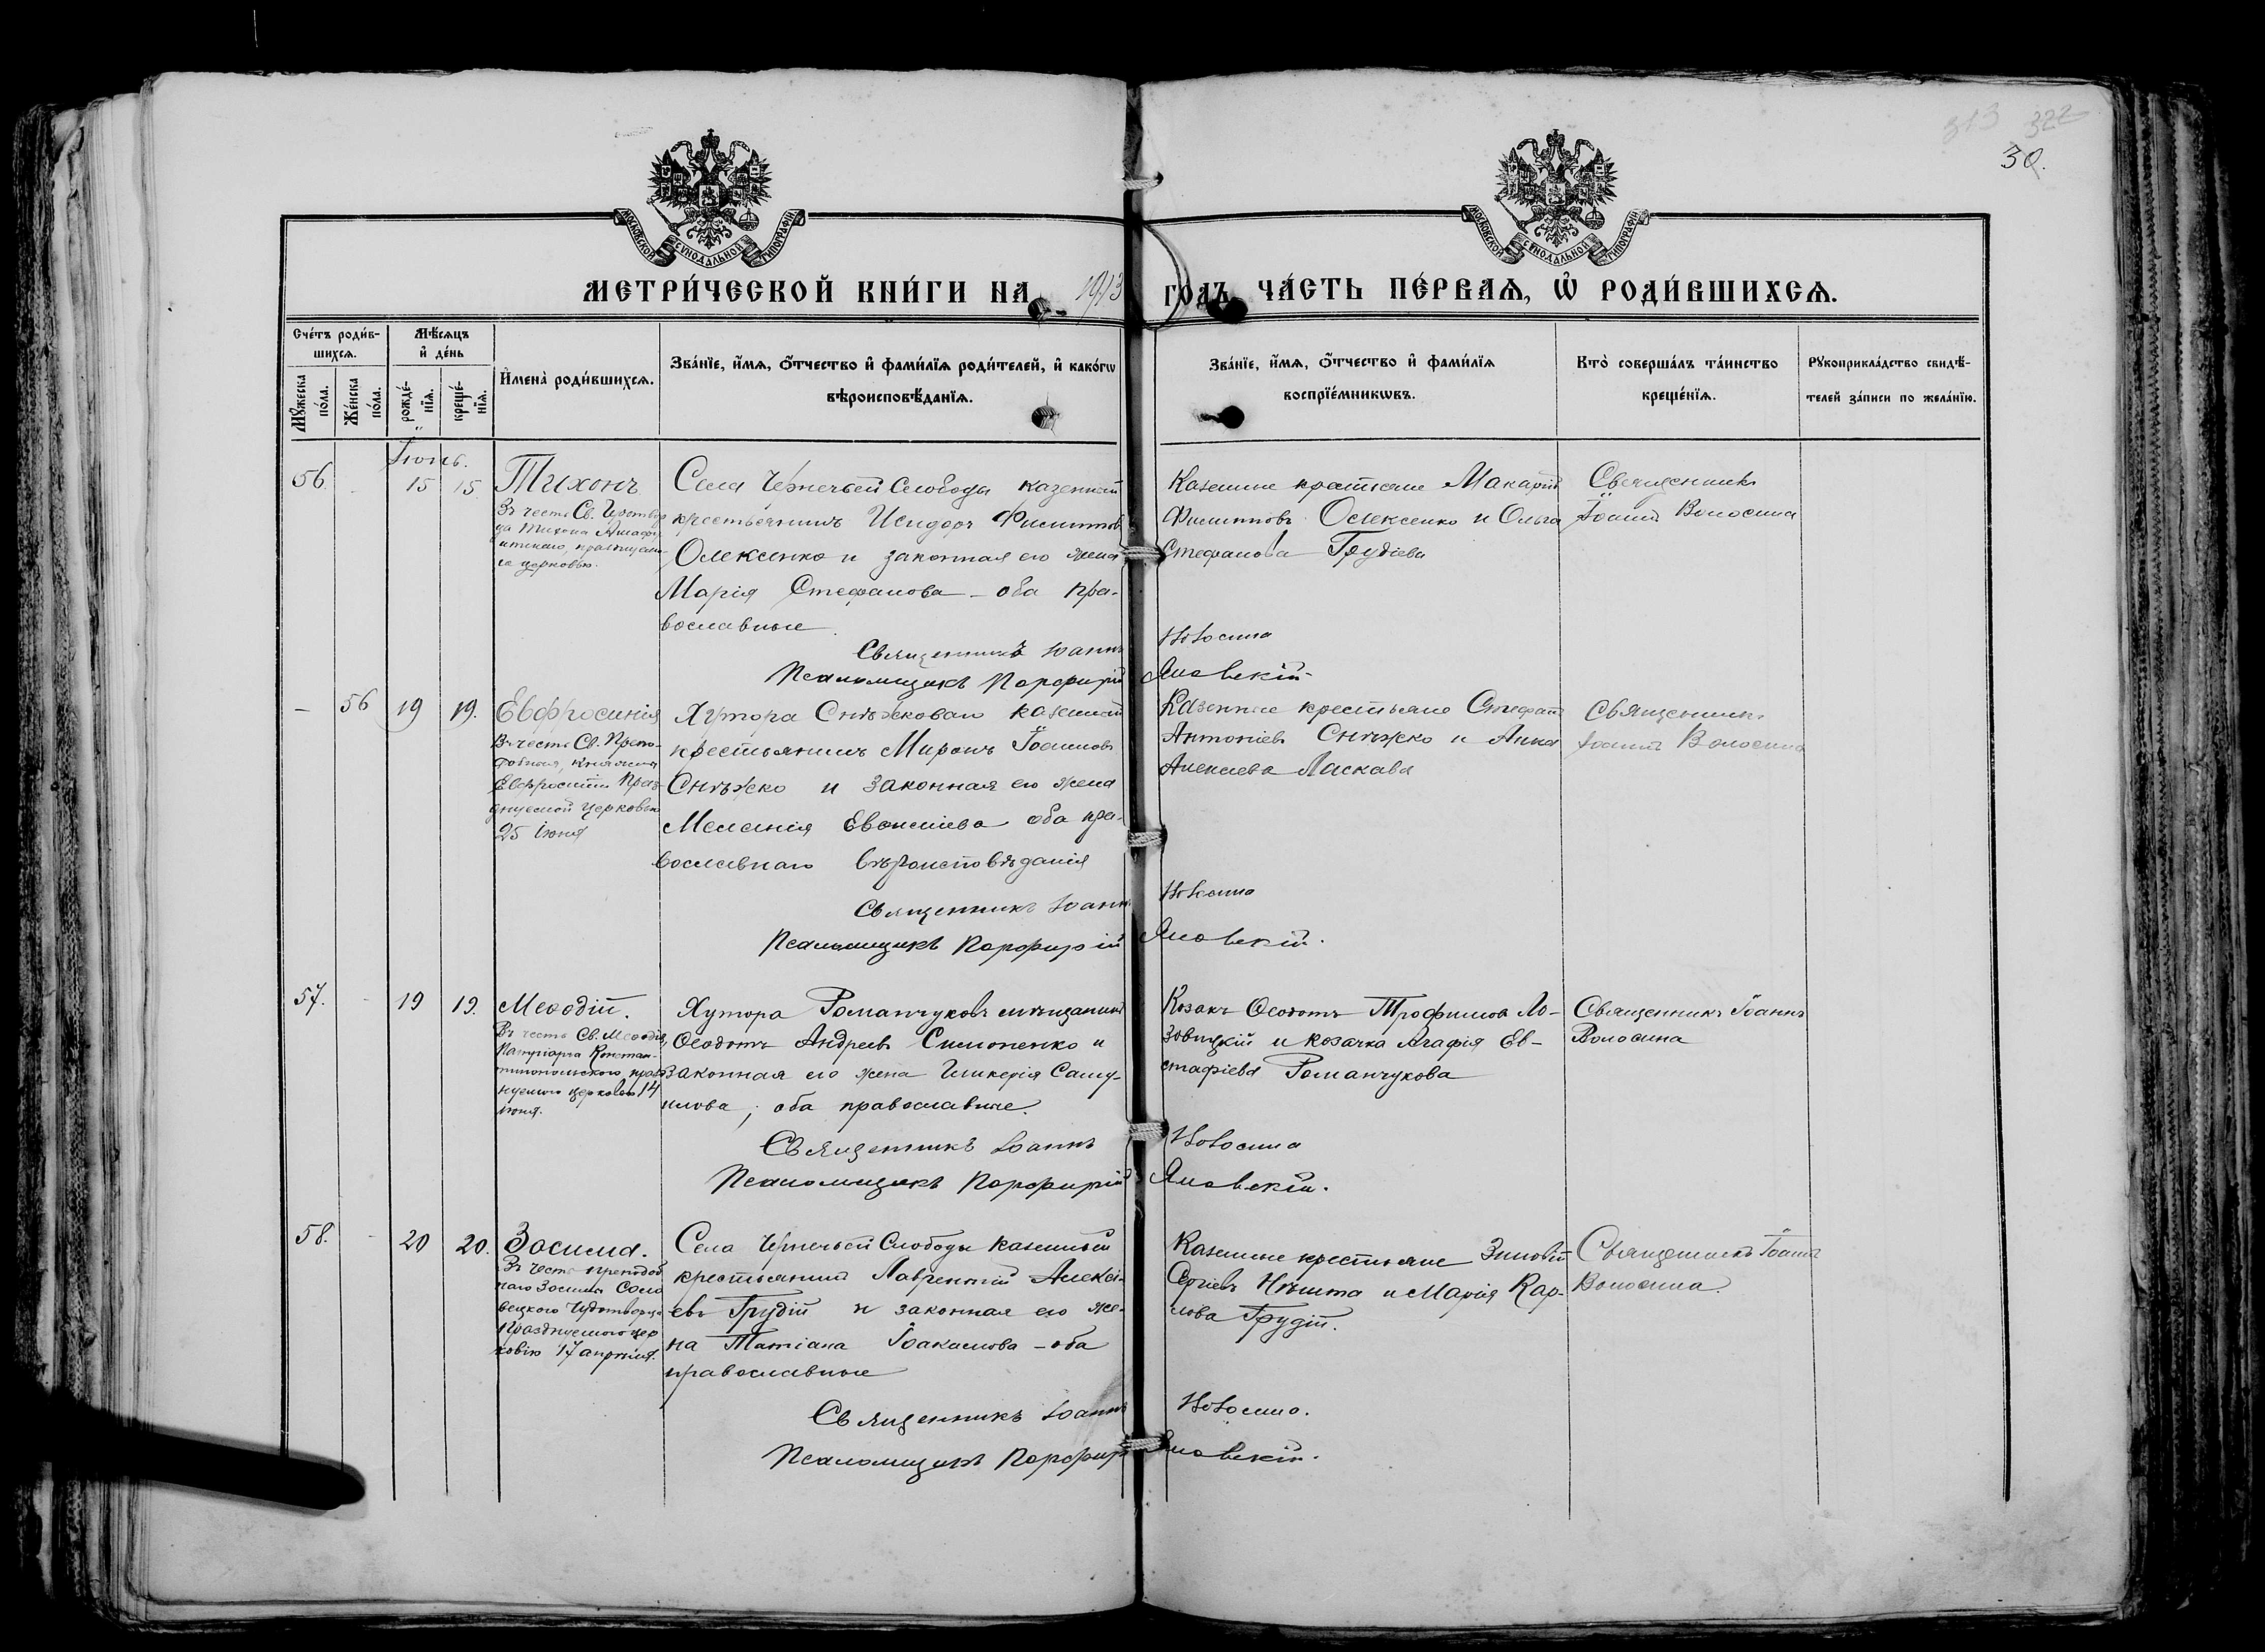 313 322
30.
МОСКОВСКОЙ СѴНОДАЛЬНОЙ ТИПОГРАФІИ
МОСКОВСКОЙ СѴНОДАЛЬНОЙ ТИПОГРАФІИ
МЕТРИ́ЧЕСКОЙ КНИ́ГИ НА 1913 ГОДЪ, ЧА́СТЬ ПЕ́РВАѦ, Ѡ҆ РОДИ́ВШИХСѦ.
Сче́тъ роди́в-
шихсѧ.
Мꙋ́жеска по́ла.
Же́нска по́ла.
Мѣ́сѧцъ
и҆ де́нь
рожде́-
нїѧ.
креще́-
нїѧ.
И҆мена̀ роди́вшихсѧ.
Зва́нїе, и҆́мѧ, ѻ҆́тчество и҆ фами́лїѧ роди́телей, и҆ како́гѡ
вѣроисповѣ́данїѧ.
Зва́нїе, и҆́мѧ, ѻ҆́тчество и҆ фами́лїѧ
воспрїе́мникѡвъ.
Кто̀ соверша́лъ та́инство
креще́нїѧ.
Рꙋкоприкла́дство свидѣ́-
телей за́писи по жела́нїю.
Іюнь.
56. 15 15. Тихонъ
Въ честь Св. Чудотвор
ца Тихона Амафу
нтскаго, празднуема
го церковью.
Села Чернечьей Слободы казенный
крестьянинъ Исидоръ Филипповъ
Олексенко и законная его жена
Марія Стефанова – оба пра-
вославные
Казенные крестьяне Макарій
Филипповъ Олексенко и Ольга
Стефанова Грудіева
Священникъ
Іоаннъ Волосина
Священникъ Іоаннъ Волосина
Псаломщикъ Порфирій Яновскій.
– 56 19 19. Евфросинія
Въ честь Св. Препо-
добныя, княгини
Евфросиніи празд-
днуемой церковью
25 іюня
Хутора Снѣжковаго казенный
крестьянинъ Миронъ Іоанновъ
Снѣжко и законная его жена
Меланія Евсисіева оба пра-
вославнаго вѣроисповѣданія
Казенные крестьяне Стефанъ
Антоніевъ Снѣжко и Анна
Алексіева Ласкава
Священникъ
Іоаннъ Волосина
Священникъ Іоаннъ Волосина
Псаломщикъ Порфирій Яновскій.
57. - 19 19. Меѳодій.
Въ честь Св. Меѳодія,
Патріарха Констан-
тинопольскаго, праздн-
нуемаго церковью 14
іюня.
Хутора Романчуковъ мѣщанинъ
Ѳеодотъ Андреевъ Симоненко и
законная его жена Гликерія Саму-
илова; оба православные.
Козакъ Ѳеодотъ Трофимовъ Ло-
зовицкій и козачка Агафія Ев-
стафіева Романчукова
Священникъ Іоаннъ
Волосина
Священникъ Іоаннъ Волосина
Псаломщикъ Порфирій Яновскій.
58. - 20 20. Зосима.
Въ честь преподоб
наго Зосимы Соло
вецкаго Чудотворца
празднуемаго цер
ковію 17 апрѣля.
Села Чернечьей Слободы казенный
крестьянинъ Лаврентій Алексі-
евъ Грудій и законная его же-
на Татіана Іоакимова – оба
православные
Казенные крестьяне Зиновій
Сергіевъ Нѣшта и Марія Кар-
пова Грудій.
Священникъ Іоаннъ
Волосина.
Священникъ Іоаннъ Волосина.
Псаломщикъ Порфирій Яновскій.